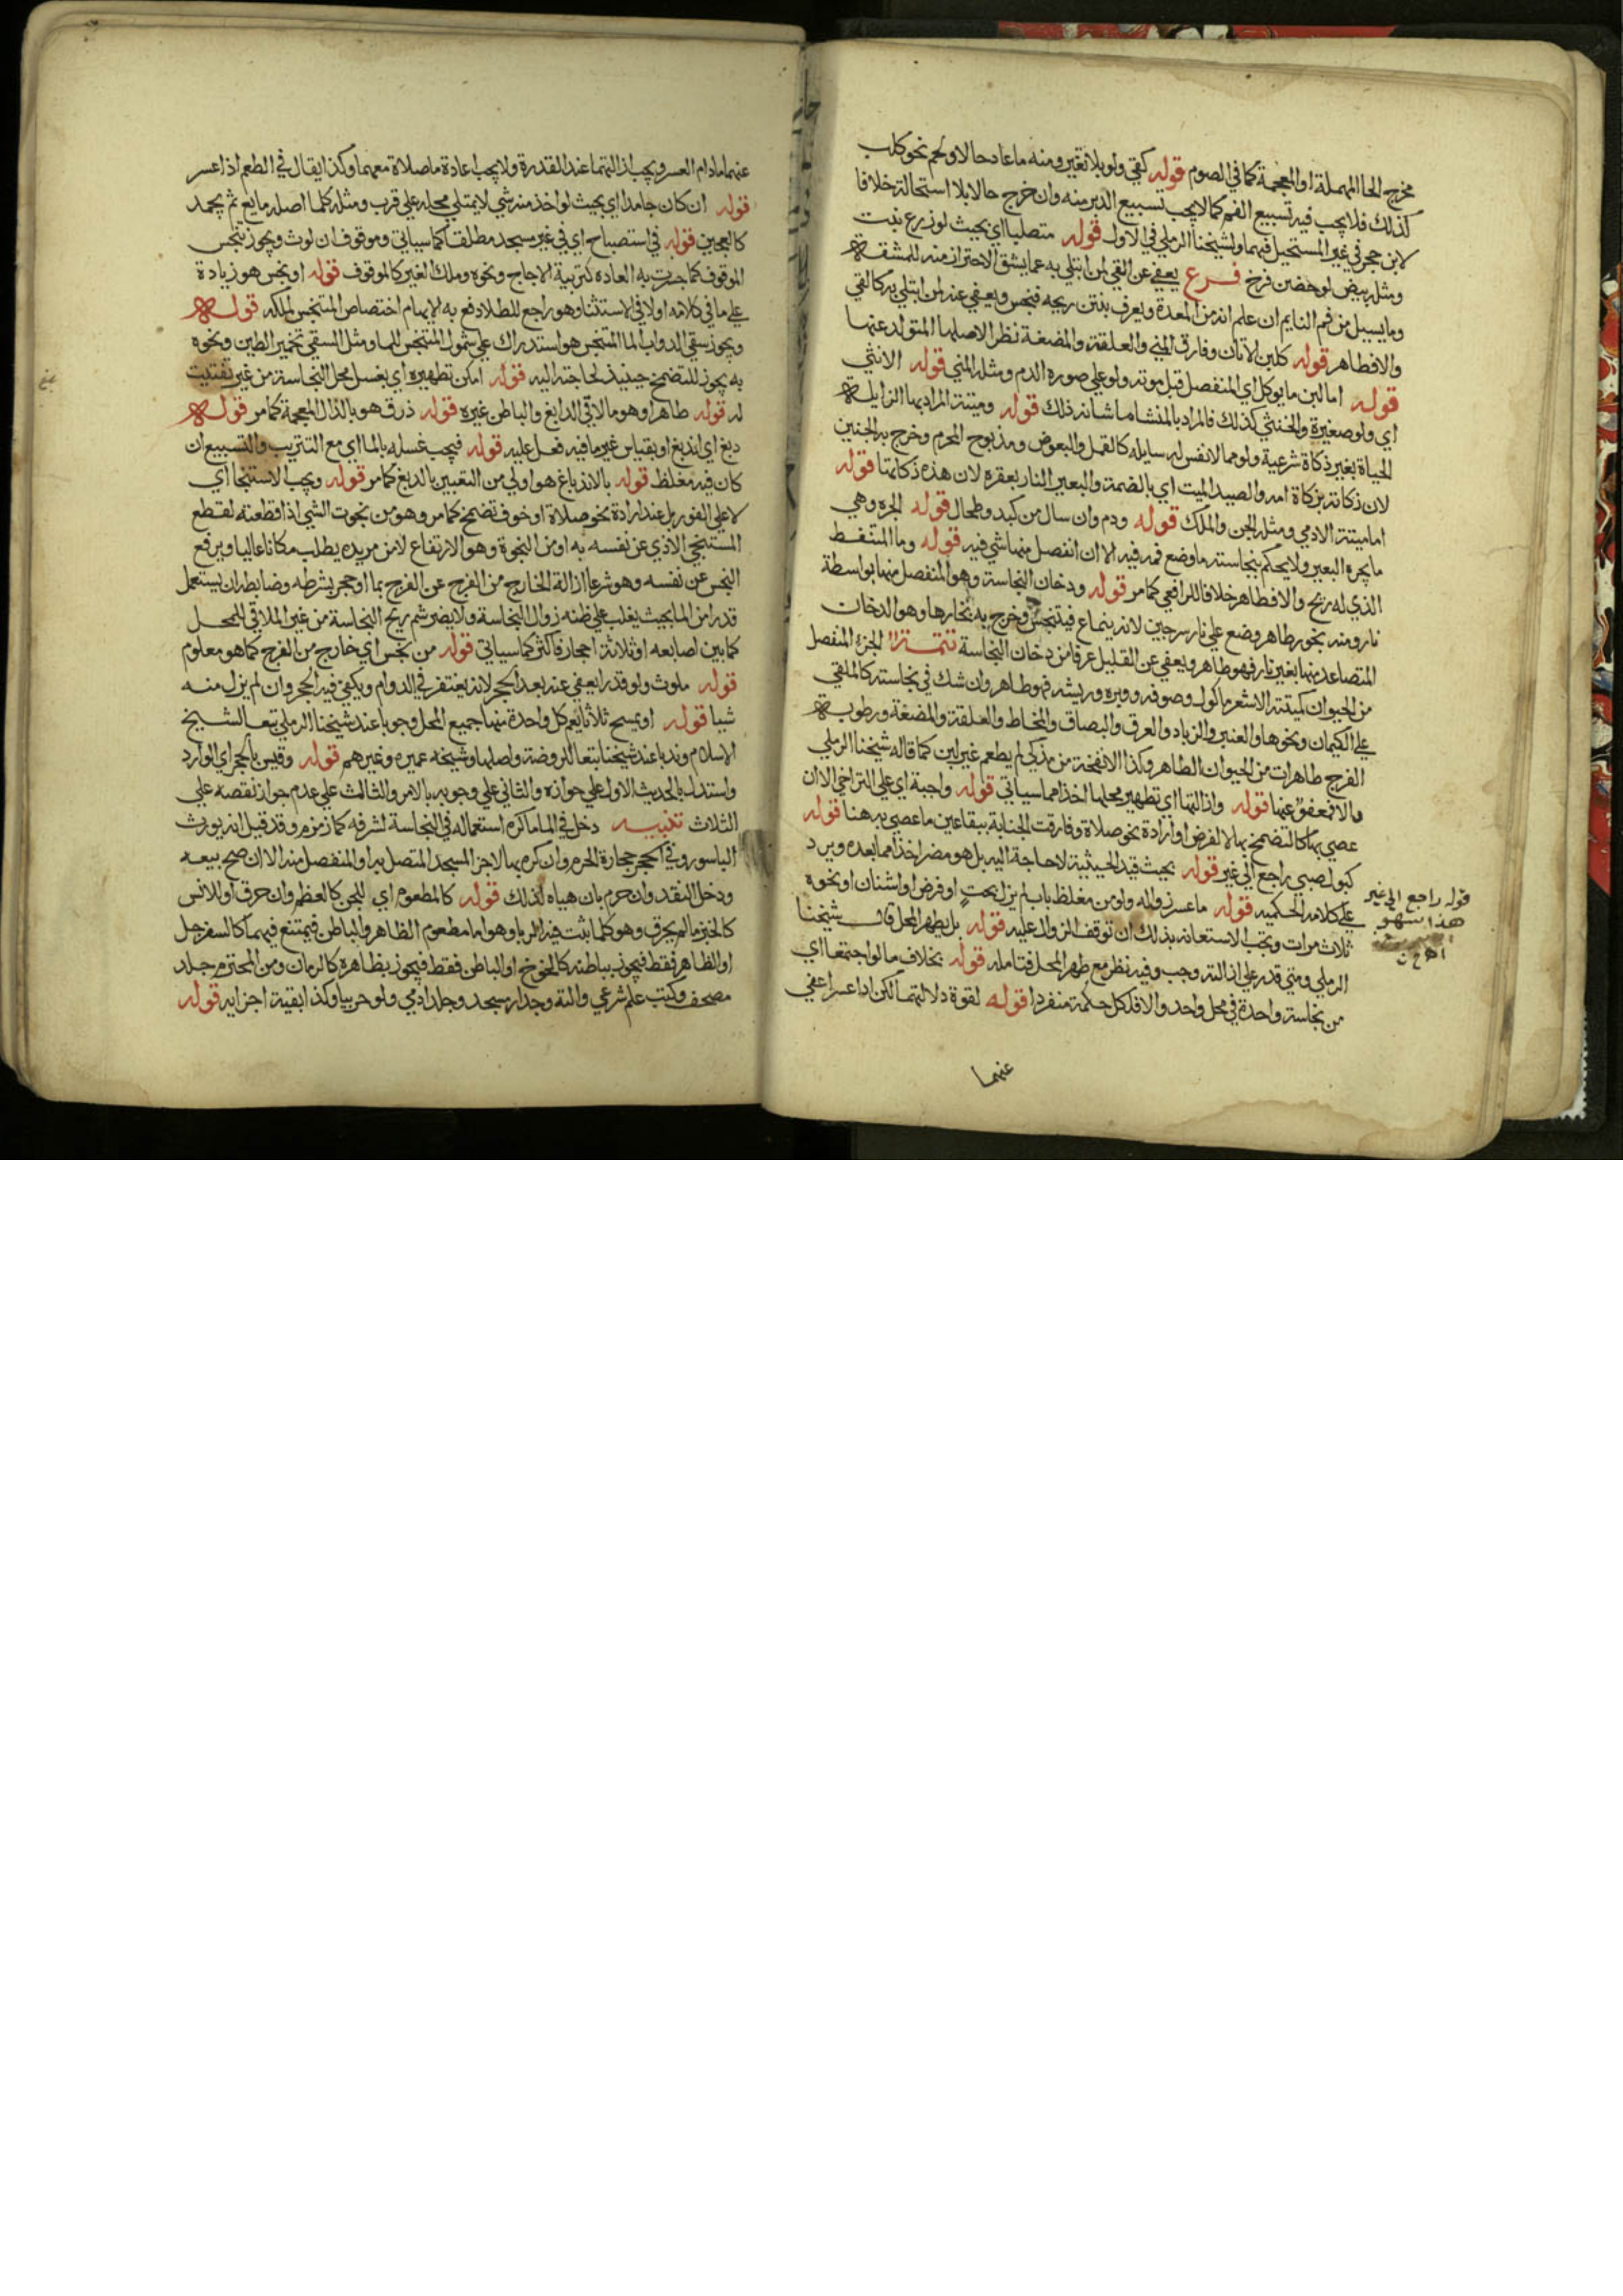 مخرج الحا المهملة او المعجمة كما في الصوم قوله كقي ولو بلا تغير ومنه ما عاد حالا ولحم نحو كلب
كذلك فلا يجب فيه تسبيع الفم كما لا يجب تسبيع الدبر منه وان خرج حالا بلا استحالة خلافا
لابن حجر في غير المستحيل فيهما ولشيخنا الرملي في الاول قوله متصلبا اي بحيث لو زرع نبت
ومثله بيض لو حضن فرخ فرع يعفى عن القي لمن ابتلي به عما يشق الاحتراز منه للمشقة
وما يسيل من فم النايم ان علم انه من المعدة ويعرف بنتن ريحه فنجس ويعفي عنه لمن ابتلي به كالقي
والا فطاهر قوله كلبن الاتان وفارق المني والعلقة والمضغة نظرا لاصلها المتولد عنها
قوله اما لبن ما يوكل اي المنفصل قبل موته ولو على صورة الدم ومثله المني قوله الانثي
اي ولو صغيرة والخنثي كذلك فالمراد بالمنشا ما شانه ذلك قوله وميتة المراد بها الزايلة
الحياة بغير ذكاة شرعية ولو مما لا نفس له سايلة كالقمل والبعوض ومذبوح المحرم وخرج به الجنين
لان ذكاته بذكاة امه والصيد الميت اي بالضمة والبعير الناد بعقره لان هذه ذكاتها قوله
اما ميتة الادمي ومثله الجن والملك قوله ودم وان سال من كبد وطحال قوله الجره وهي
ما يجره البعير ولا يحكم بنجاسة ما وضع فمه فيه الا ان انفصل منها شي فيه قوله وما المتنفط
الذي له ريح والا فطاهر خلافا للرافعي كما مر قوله ودخان النجاسة وهو المنفصل منها بواسطة
نار ومنه بخور طاهر وضع علي نار سرجين لانه ينماع فيتنجس وخرج به بخارها وهو الدخان
المتصاعد منها بغير نار فهو طاهر ويعفي عن القليل عرفا من دخان النجاسة تتمة الجزء المنفصل
من الحيوان كميتته الا شعر ماكول وصوفه ووبره وريشه فهو طاهر وان شك في نجاسته كالملقي
علي الكيمان ونحوها والعنبر والزباد والعرق والبصاق والمخاط والعلقة والمضغة ورطوبة
الفرج طاهرات من الحيوان الطاهر وكذا الانفحة من مذكي لم يطعم غير لبن كما قاله شيخنا الرملي
والا فمعفو عنها قوله وازالتها اي تطهير محلها اخذا مما سياتي قوله واجبة اي علي التراخي الا ان
عصي بها كالتضمخ بها لا لغرض او ارادة نحو صلاة وفارقت الجنابة ببقا عين ما عصي به هنا قوله
كبول صبي راجع الي غير قوله بحيث قيد الحيثية لا حاجة اليه بل هو مضر اخذا مما بعده ويرد
علي كلامه الحكمية قوله ما عسر زواله ولو من مغلظ بان لم يزل بحت او قرض او اشنان او نحوه
ثلاث مرات ويجب الاستعانة بذلك ان توقف الزوال عليه قوله بل يطهر المحل قال شيخنا
الرملي ومتي قدر علي ازالته وجب وفيه نظر مع طهر المحل فتامله قوله بخلاف ما لو اجتمعا اي
من نجاسة واحدة في محل واحد والا فلكل حكمه منفردا قوله لقوة دلالتهما لكن اذا عسرا عفي
عنهما
قوله راجع الي غير
هذا سهو
عنهما ما دام العسر ويجب ازالتهما عند القدرة ولا يجب اعادة ما صلاة معهما وكذا يقال في الطعم اذا عسر
قوله ان كان جامدا اي بحيث لو اخذ منه شي لا يمتلي محله علي قرب ومثله كلما اصله مايع ثم يجمد
كالعجين قوله في استصباح اي في غير مسجد مطلقا كما سياتي وموقوف ان لوث ويجوز بنجس
الموقوف كما جرت به العادة كتربية الدجاج ونحوه وملك الغير كالموقوف قوله او نجس هو زيادة
علي ما في كلامه اولا في الاستثنا وهو راجع للطلا دفع به الايهام اختصاص المتنجس لملكه قوله
ويجوز سقي الدواب الما المتنجس هو استدراك علي شمول المتنجس للما ومثل السقي تخمير الطين ونحوه
به يجوز للتضمخ حينيذ لحاجته اليه قوله امكن تطهيره اي بغسل محل النجاسة من غير تفتيت
له قوله طاهرا وهو ما لاقي الدابغ والباطن غيره قوله ذرق هو بالذال المعجمة كما مر قوله
دبغ اي اندبغ او بقياس غير ما فيه فعل عليه قوله فيجب غسله بالما اي مع التتريب والتسبيع ان
كان فيه مغلظ قوله بالاندباغ هو اولي من التعبير بالدبغ كما مر قوله ويجب الاستنجا اي
لا علي الفور بل عند ارادة نحو صلاة او خوف تضمخ كما مر وهو من نجوت الشي اذا قطعته لقطع
المستنجي الاذي عن نفسه به او من النجوة وهو الارتفاع لان من يريده يطلب مكانا عاليا ويرفع
النجس عن نفسه وهو شرعا ازالة الخارج من الفرج عن الفرج بما او حجر بشرطه وضابطه ان يستعمل
قدرا من الما بحيث يغلب علي ظنه زوال النجاسة ولا يضر شم ريح النجاسة من غير الملاقي للمحل
كما بين اصابعه او ثلاثة احجار فاكثر كما سياتي قوله من نجس اي خارج من الفرج كما هو معلوم
قوله ملوث ولو قدرا يعفي عنه بعد الحجر لانه يغتفر في الدوام ويكفي فيه الحجر وان لم يزل منه
شيا قوله او يمسح ثلاثا يعم كل واحدة منها جميع المحل وجوبا عند شيخنا الرملي تبعا لشيخ
الاسلام وندبا عند شيخنا تبعا للروضة واصلها وشيخه عميره وغيرهم قوله وقيس بالحجر اي الوارد
واستدل بالحديث الاول علي جوازه والثاني علي وجوبه بالامر والثالث علي عدم جواز نقصه علي
الثلاث تنبيه دخل في الما ما كره استعماله في النجاسة لشرفه كما زمزم وقد قيل انه يورث
الباسور وفي الحجر حجارة الحرم وان كره بها لا جزا المسجد المتصل به او المنفصل منه الا ان صح بيعه
ودخل النقد وان حرم بان هياه لذلك قوله كالمطعوم اي للجن كالعظم وان حرق او للانس
كالخبز ما لم يحرق وهو كلما ثبت فيه الربا وهو اما مطعوم الظاهر والباطن فيمتنع فيهما كالسفرجل
او الظاهر فقط فيجوز بباطنه كالخوخ او الباطن فقط فيجوز بظاهره كالرمان ومن المحترم جلد
مصحف وكتب علم شرعي والته وجدار مسجد وجلد ادمي ولو حربيا وكذا بقية اجزايه قوله